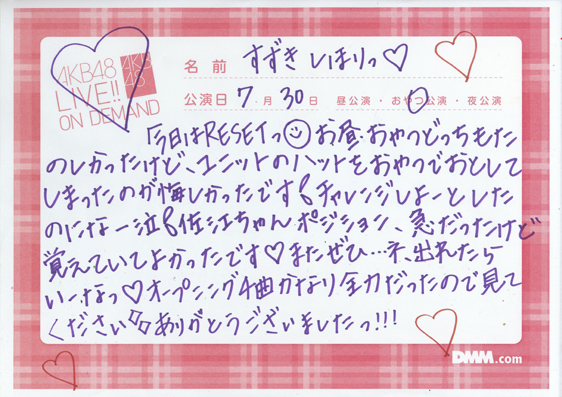 AKB48
LIVE!!
ON DEMAND
AKB
48
名前 すずきしほりっ♡
公演日 7月30日 昼公演・おやつ公演・夜公演
今日はRESETっ☺お昼・おやつどっちもた
のしかったけど、ユニットのハットをおやつでおとして
しまったのが悔しかったです!チャレンジしよーとした
のになー泣!佐江ちゃんポジション、急だったけど
覚えていてよかったです♡またぜひ…ネ、出れたら
いーなっ♡オープニング4曲かなり全力だったので見て
くださいありがとうございましたっ!!!
DMM.com